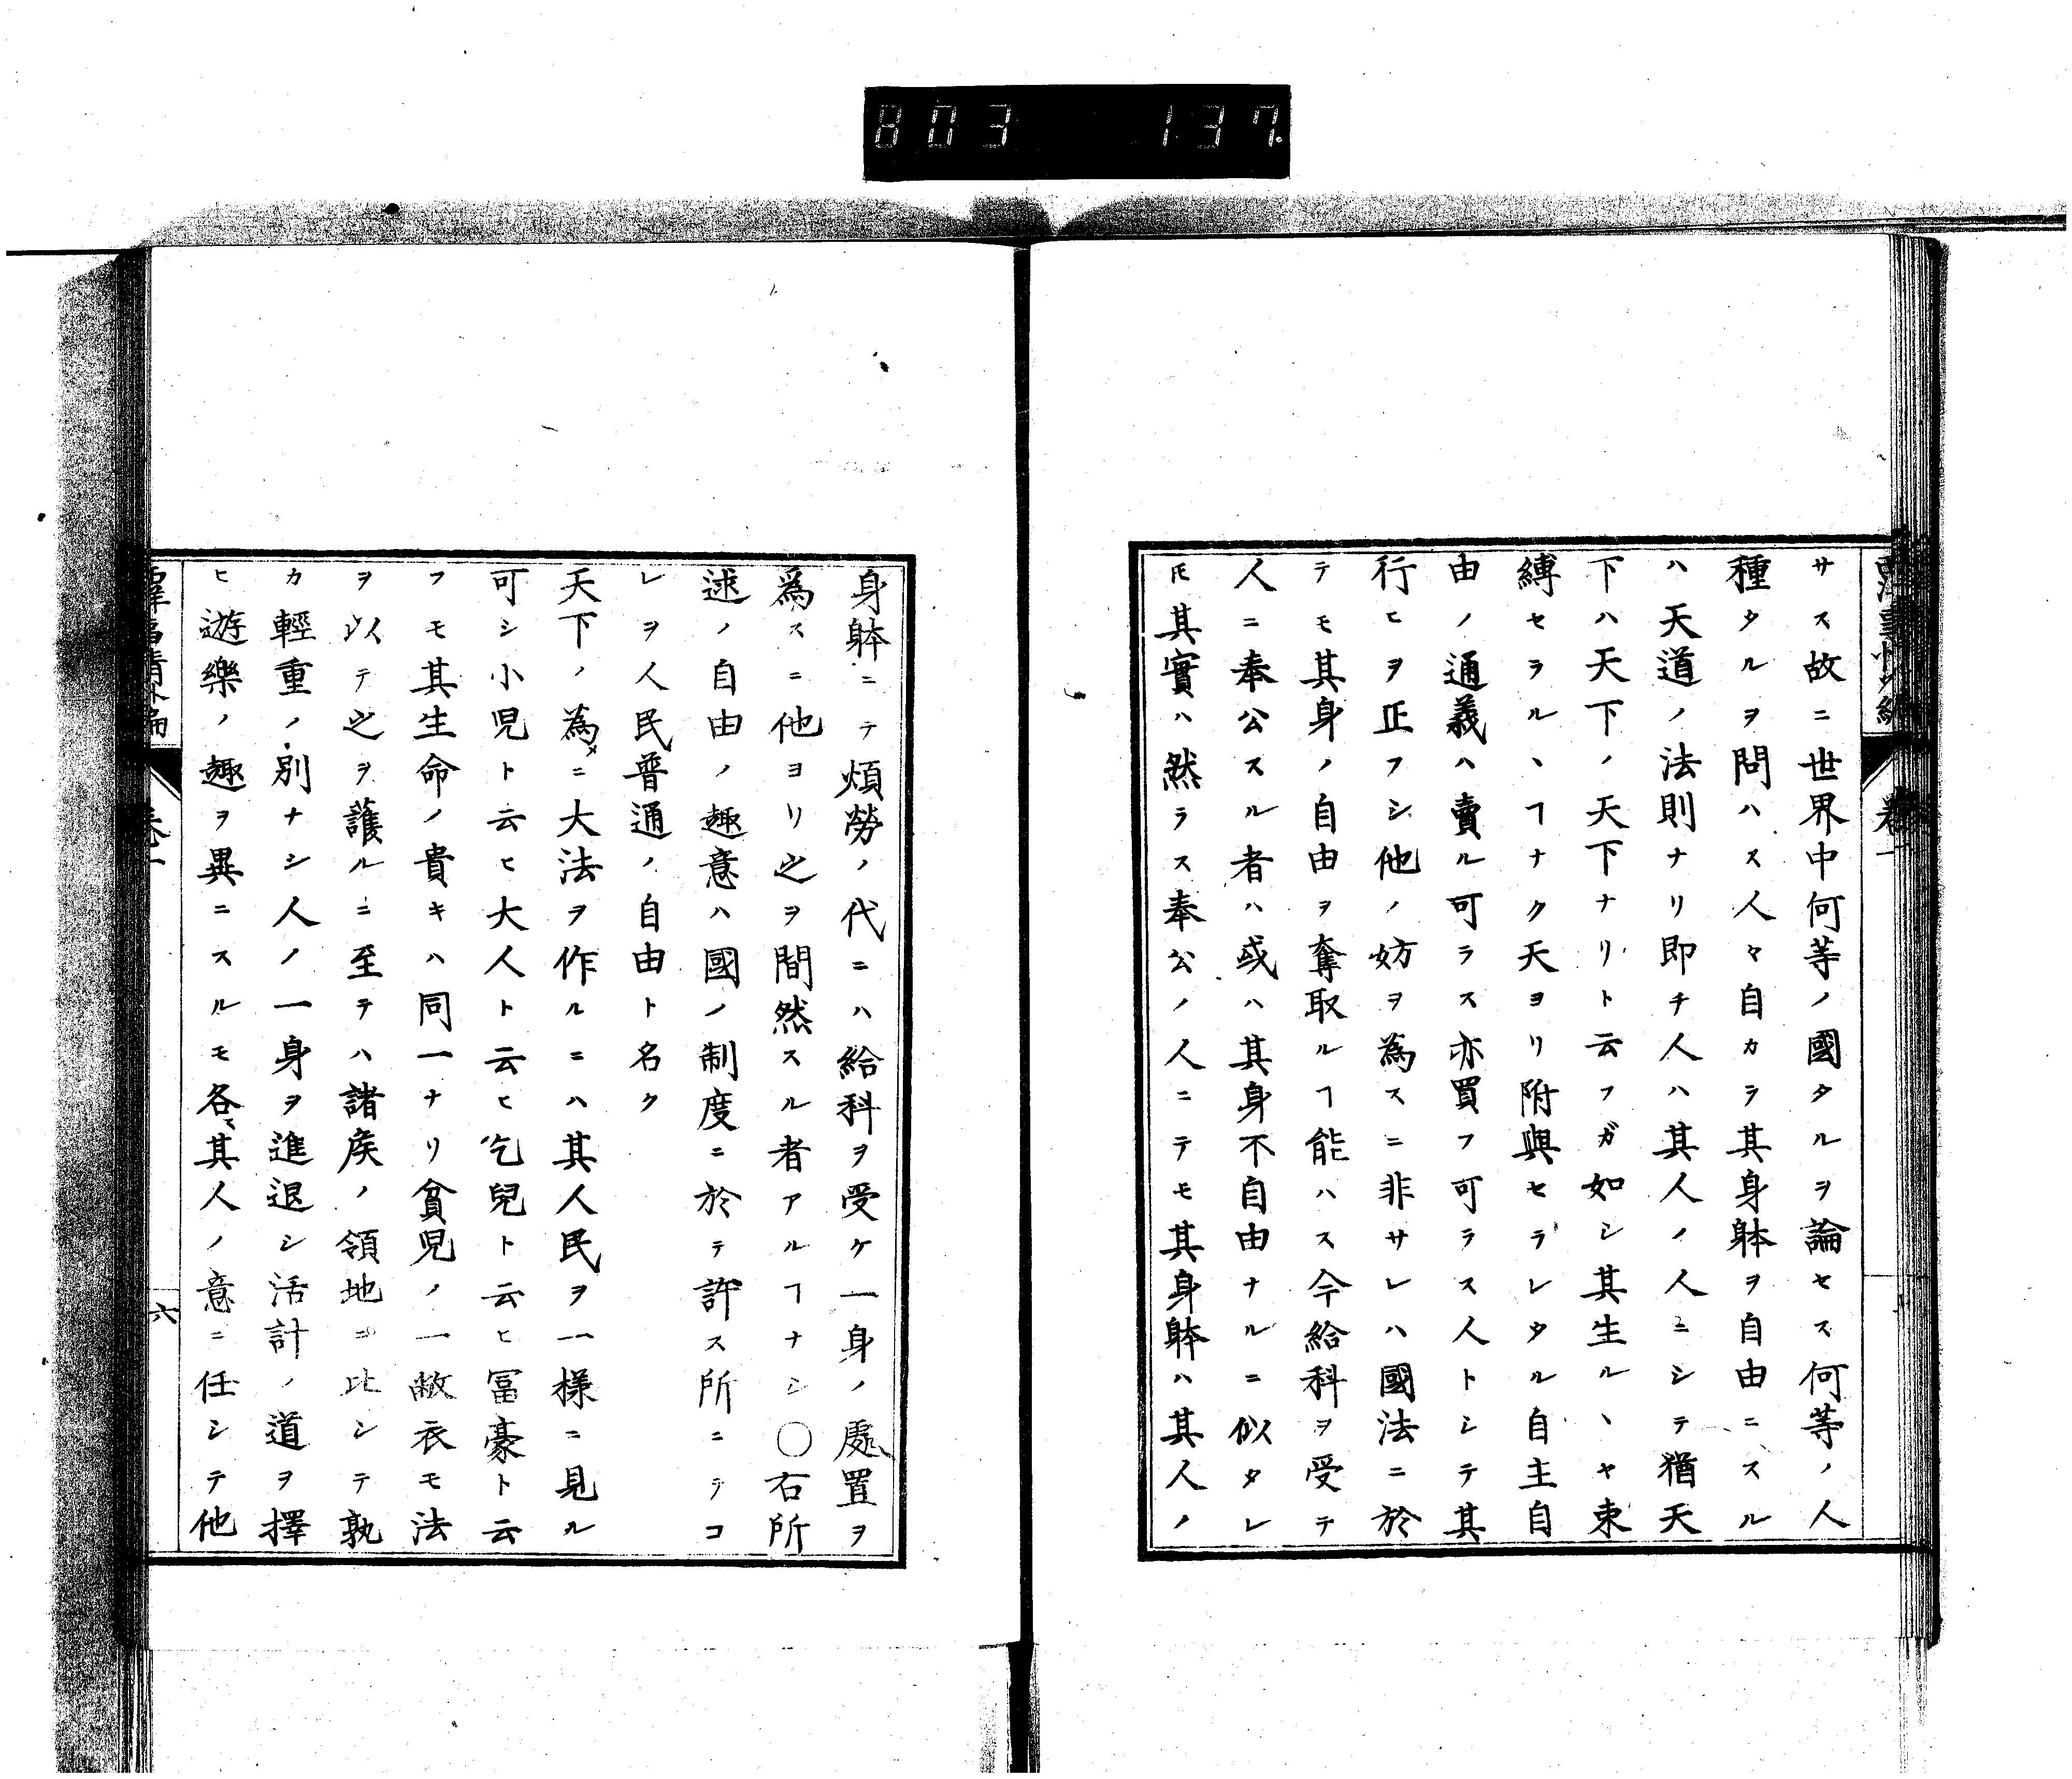 803 137.
西洋事情外編 卷一
サス故ニ世界中何等ノ國タルヲ論セス何等ノ人
種タルヲ問ハス人々自カラ其身躰ヲ自由ニスル
ハ天道ノ法則ナリ即チ人ハ其人ノ人ニシテ猶天
下ハ天下ノ天下ナリト云フガ如シ其生ルヽヤ束
縛セラルヽヿナク天ヨリ附與セラレタル自主自
由ノ通義ハ賣ル可ラス亦買フ可ラス人トシテ其
行ヒヲ正フシ他ノ妨ヲ為スニ非サレハ國法ニ於
テモ其身ノ自由ヲ奪取ルヿ能ハス今給料ヲ受テ
人ニ奉公スル者ハ或ハ其身不自由ナルニ似タレ
𪜈其實ハ然ラス奉公ノ人ニテモ其身躰ハ其人ノ
身躰ニテ煩勞ノ代ニハ給料ヲ受ケ一身ノ處置ヲ
為スニ他ヨリ之ヲ間然スル者アルヿナシ〇右所
述ノ自由ノ趣意ハ國ノ制度ニ於テ許ス所ニテコ
レヲ人民普通ノ自由ト名ク
天下ノ為メニ大法ヲ作ルニハ其人民ヲ一様ニ見ル
可シ小児ト云ヒ大人ト云ヒ乞兒ト云ヒ冨豪ト云
フモ其生命ノ貴キハ同一ナリ貧児ノ一敝衣モ法
ヲ以テ之ヲ護ルニ至テハ諸矦ノ領地ニ比シテ孰
カ輕重ノ別ナシ人ノ一身ヲ進退シ活計ノ道ヲ擇
ヒ遊樂ノ趣ヲ異ニスルモ各々其人ノ意ニ任シテ他
西洋事情外編 卷一 六